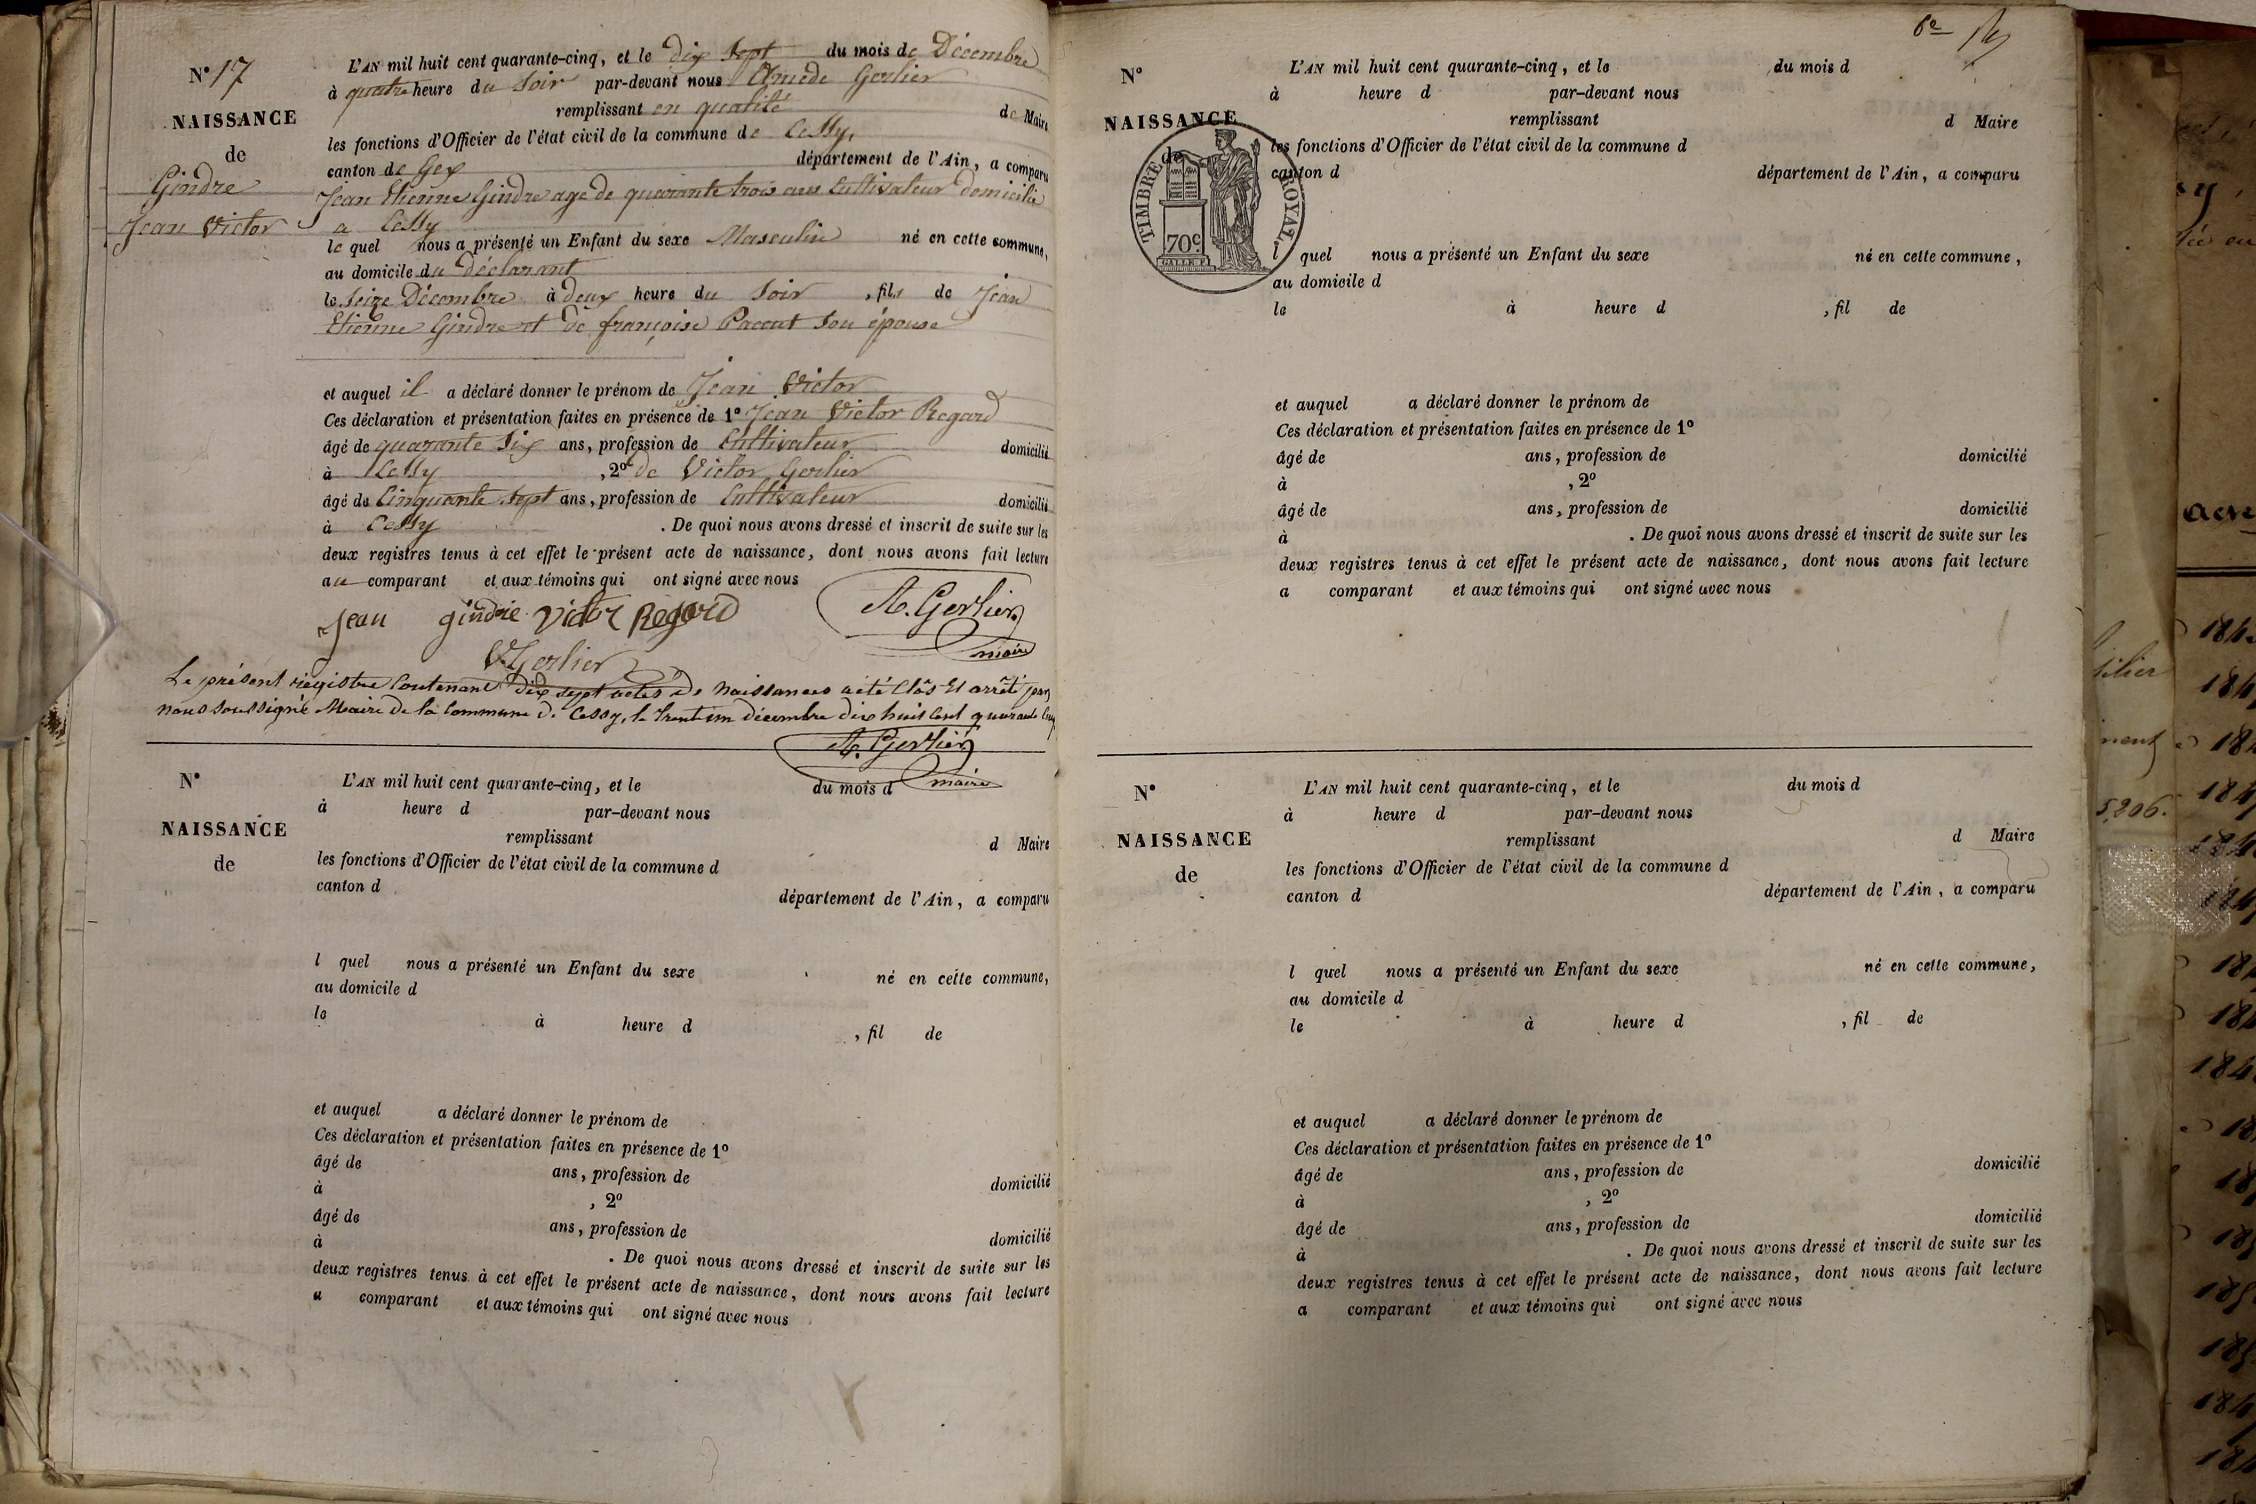 N° 17
NAISSANCE
de
Gindre
Jean Victor
L'AN mil huit cent quarante-cinq, et le dix Sept du mois de Décembre
à quatre heure du Soir par-devant nous Amede Gerlier
remplissant en qualité de Maire
les fonctions d'Officier de l'état civil de la commune de Cessy,
canton de Gex département de l'Ain, a comparu
Jean Etienne Gindre age de quarante trois ans Cultivateur domicilié
a Cessy
le quel nous a présenté un Enfant du sexe Masculin né en cette commune,
au domicile du Déclarant
le Seize Décembre à deux heure du Soir , fils de Jean
Etienne Gindre et de françoise Paccut Son épouse
et auquel il a déclaré donner le prénom de Jean Victor
Ces déclaration et présentation faites en présence de 1° Jean Victor Regard
âgé de quarante Six ans, profession de Cultivateur domicilié
à Cessy , 2° de Victor Gerlier
âgé de Cinquante Sept ans, profession de Cultivateur domicilié
à Cessy . De quoi nous avons dressé et inscrit de suite sur les
deux registres tenus à cet effet le présent acte de naissance, dont nous avons fait lecture
au comparant et aux témoins qui ont signé avec nous
Jean gindre Victor Regard A. Gerlier
maire
V. Gerlier
Le présent régistre Contenant dix sept actes de Naissances a été Clôs Et arrêté par
nous soussigné Maire de la Commune de Cessy, le trent un décembre dix huit Cent quarante Cinq
A. Gerlier
maire
N°
NAISSANCE
de
L'AN mil huit cent quarante-cinq, et le du mois d
à heure d par-devant nous
remplissant d Maire
les fonctions d'Officier de l'état civil de la commune d
canton d département de l'Ain, a comparu
l quel nous a présenté un Enfant du sexe né en cette commune,
au domicile d
le à heure d , fil de
et auquel a déclaré donner le prénom de
Ces déclaration et présentation faites en présence de 1°
âgé de ans, profession de domicilié
à , 2°
âgé de ans, profession de domicilié
à . De quoi nous avons dressé et inscrit de suite sur les
deux registres tenus à cet effet le présent acte de naissance, dont nous avons fait lecture
a comparant et aux témoins qui ont signé avec nous
6e
N°
NAISSANCE
de
TIMBRE ROYAL
70c
L'AN mil huit cent quarante-cinq, et le du mois d
à heure d par-devant nous
remplissant d Maire
les fonctions d'Officier de l'état civil de la commune d
canton d département de l'Ain, a comparu
l quel nous a présenté un Enfant du sexe né en cette commune,
au domicile d
le à heure d , fil de
et auquel a déclaré donner le prénom de
Ces déclaration et présentation faites en présence de 1°
âgé de ans, profession de domicilié
à , 2°
âgé de ans, profession de domicilié
à . De quoi nous avons dressé et inscrit de suite sur les
deux registres tenus à cet effet le présent acte de naissance, dont nous avons fait lecture
a comparant et aux témoins qui ont signé avec nous
N°
NAISSANCE
de
L'AN mil huit cent quarante-cinq, et le du mois d
à heure d par-devant nous
remplissant d Maire
les fonctions d'Officier de l'état civil de la commune d
canton d département de l'Ain, a comparu
l quel nous a présenté un Enfant du sexe né en cette commune,
au domicile d
le à heure d , fil de
et auquel a déclaré donner le prénom de
Ces déclaration et présentation faites en présence de 1°
âgé de ans, profession de domicilié
à , 2°
âgé de ans, profession de domicilié
à . De quoi nous avons dressé et inscrit de suite sur les
deux registres tenus à cet effet le présent acte de naissance, dont nous avons fait lecture
a comparant et aux témoins qui ont signé avec nous